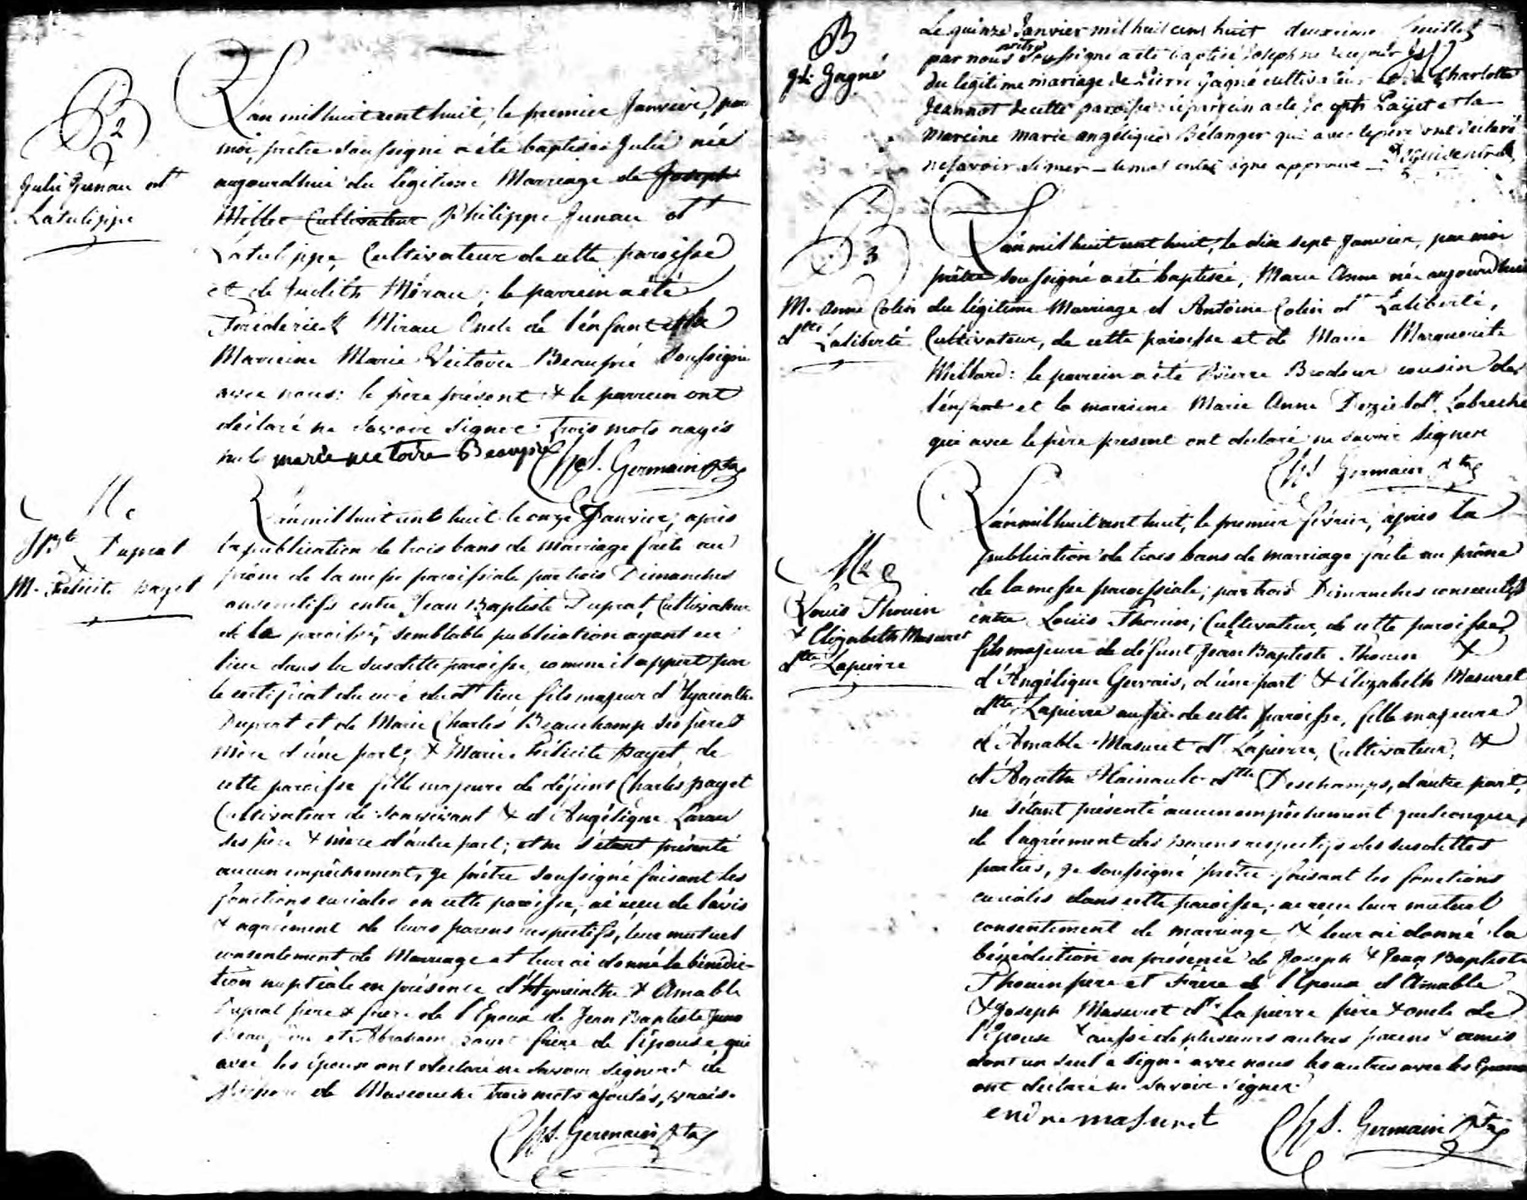 B 2
Julie Junau dt
Latulippe
L'an mil huit cent huit, le premier Janvier, par
moi, prêtre soussigné a été baptisée Julie née
aujourdhui du légitime Marriage de Joseph
Millet Cultivateur Philippe Junau dt
Latulippe, Cultivateur de cette paroisse
et de Judith Mirau; le parrein a été
Frederick Mirau Oncle de l'enfant et la
Marreine Marie Victoire Beaupré Soussignée
avec nous: le père présent & le parrein ont
déclaré ne Savoir Signer. trois mots rayés
nuls marie victoire Beaupré Chs. Germain Ptre
M
J Bte Duprat
M. Félicité Payet
L'an mil huit cent huit le onze Janvier, après
la publication de trois bans de Marriage faite au
prône de la messe paroissiale par trois Dimanches
consecutifs entre Jean Baptiste Duprat, Cultivateur
de la paroisse, semblable publication ayant eu
lieu dans la susditte paroisse, comme il appert par
le certificat du curé du dt lieu fils majeur d'Hyacinthe
Duprat et de Marie Charles Beauchamp ses père &
mère d'une part; & Marie Félicité Payet, de
cette paroisse fille majeure de défunt Charles Payet
Cultivateur de Son vivant & d'Angélique
ses père & mère d'autre part; et ne s'étant présenté
aucun empêchement, je prêtre soussigné faisant les
fonctions curiales en cette paroisse, ai reçu de l'avis
& agrément de leurs parens respectifs, leur mutuel
consentement de Marriage et leur ai donné la bénédic-
tion nuptiale en présence d'Hyacinthe & Amable
Duprat père & frère de l'Epoux de Jean Baptiste
et Abraham Payet frère de l'épouse qui
avec les époux ont déclaré ne Savoir Signer. de
de Mascouche trois mots ajoutés, vrais.
Chs. Germain Ptre
B
Gagné
Le quinze Janvier mil huit cens huit deuxieme feuillet
par nous prêtre soussigné a été baptisé Joseph né
du légitime mariage de Pierre Gagné cultivateur & de Charlotte
Jeannot de cette paroisse: le parrein a été Joseph Paijet et la
marreine marie angélique Bélanger qui avec le père ont déclaré
ne savoir signer
B 3
M. Anne Colin
dte Laliberté
L'an mil huit cent huit, le dix sept Janvier, par moi
prêtre soussigné a été baptisée, Marie Anne née aujourdhui
du légitime Marriage d'Antoine Colin dt Laliberté,
Cultivateur, de cette paroisse et de Marie Marguerite
Millard: le parrein a été Pierre Brodeur cousin de
l'enfant et la marreine Marie Anne dt Labreche
qui avec le père present ont déclaré ne savoir Signer
Chs Germain Ptre
M
Louis Thouin
& Elizabeth Masuret
dtte Lapierre
L'an mil huit cent huit, le premier Février, après la
publication de trois bans de marriage faite au prône
de la messe paroissiale; par trois Dimanches consecutifs
entre Louis Thouin, Cultivateur, de cette paroisse
fils majeure de défunt Jean Baptiste Thouin &
d'Angélique Gervais, d'une part & Elizabeth Masuret
dtte Lapierre aussi de cette paroisse, fille majeure
d'Amable Masuret dt Lapierre, Cultivateur, &
d'Agathe Hainault dtte Deschamps, d'autre part,
ne s'étant présenté aucun empêchement quelconque,
de l'agrément des parens respectifs des susdittes
parties, je soussigné prêtre faisant les fonctions
curiales dans cette paroisse, ai reçu leur mutuel
consentement de mariage, & leur ai donné la
bénédiction en présence de Joseph & Jean Baptiste
Thouin père et Frère de l'Epoux d'Amable
& Joseph Masuret dt Lapierre père & oncle de
l'Epouse & aussi de plusieurs autres parens & amis
dont un seul a signé avec nous les autres avec les Epoux
ont déclaré ne Savoir Signer.
endre masuret Chs. Germain Ptre